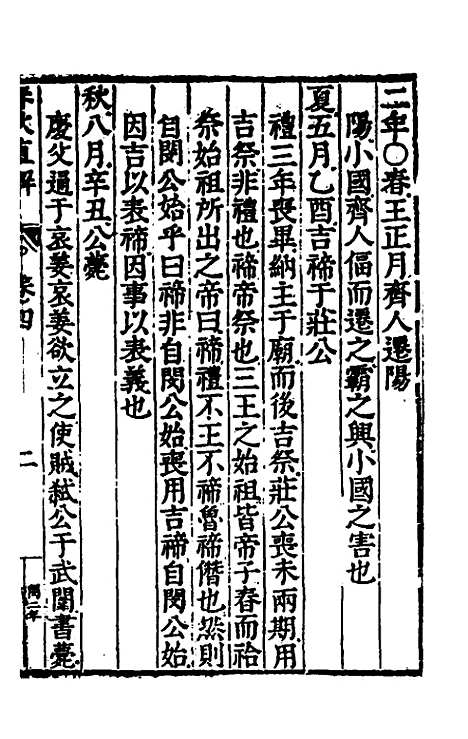 二年○春王正月齊人遷陽
陽小國齊人偪而遷之霸之興小國之害也
夏五月乙酉吉禘于莊公
禮三年喪畢納主于廟而後吉祭莊公喪未兩期用
吉祭非禮也禘帝祭也三王之始祖皆帝子春而祫
祭始祖所出之帝曰禘禮不王不禘魯禘僭也然則
自閔公始乎曰禘非自閔公始喪用吉禘自閔公始
因吉以表禘因事以表義也
秋八月辛丑公薨
慶父通于哀姜哀姜欲立之使賊弒公于武闈書薨
春秋直解
卷四
二
閔二年